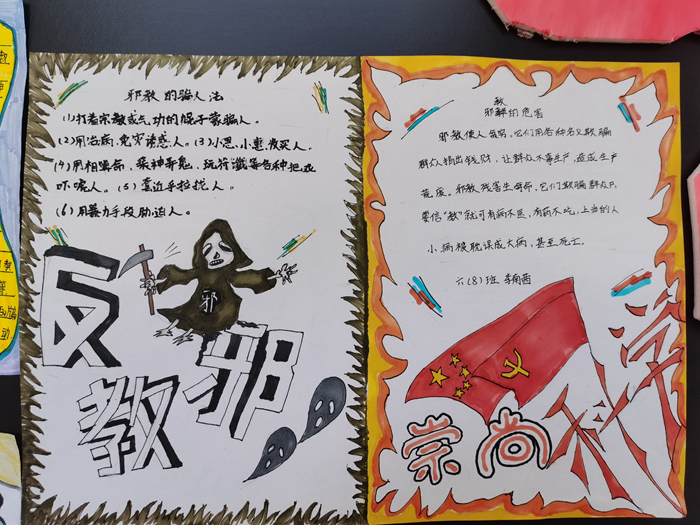 邪教的骗人法
(1)打着宗教或气功的幌子蒙骗人。
(2)用治病,免灾诱惑人。(3)小恩,小惠收买人。
(4)用相算命,装神弄鬼,玩符谶等各种把戏
吓唬人。(5)靠近乎拉拢人。
(6)用暴力手段胁迫人。
邪
反
邪
教
邪教的危害
邪教使人,它们用各种名义欺骗
群众捐出钱财,让群众不事生产,造成生产
荒废。邪教残害生命,它们欺骗群众只
要信“教”就可有病不医,有药不吃,上当的人
小病被耽误成大病,甚至死亡。
六(8)班 李
崇尚科学